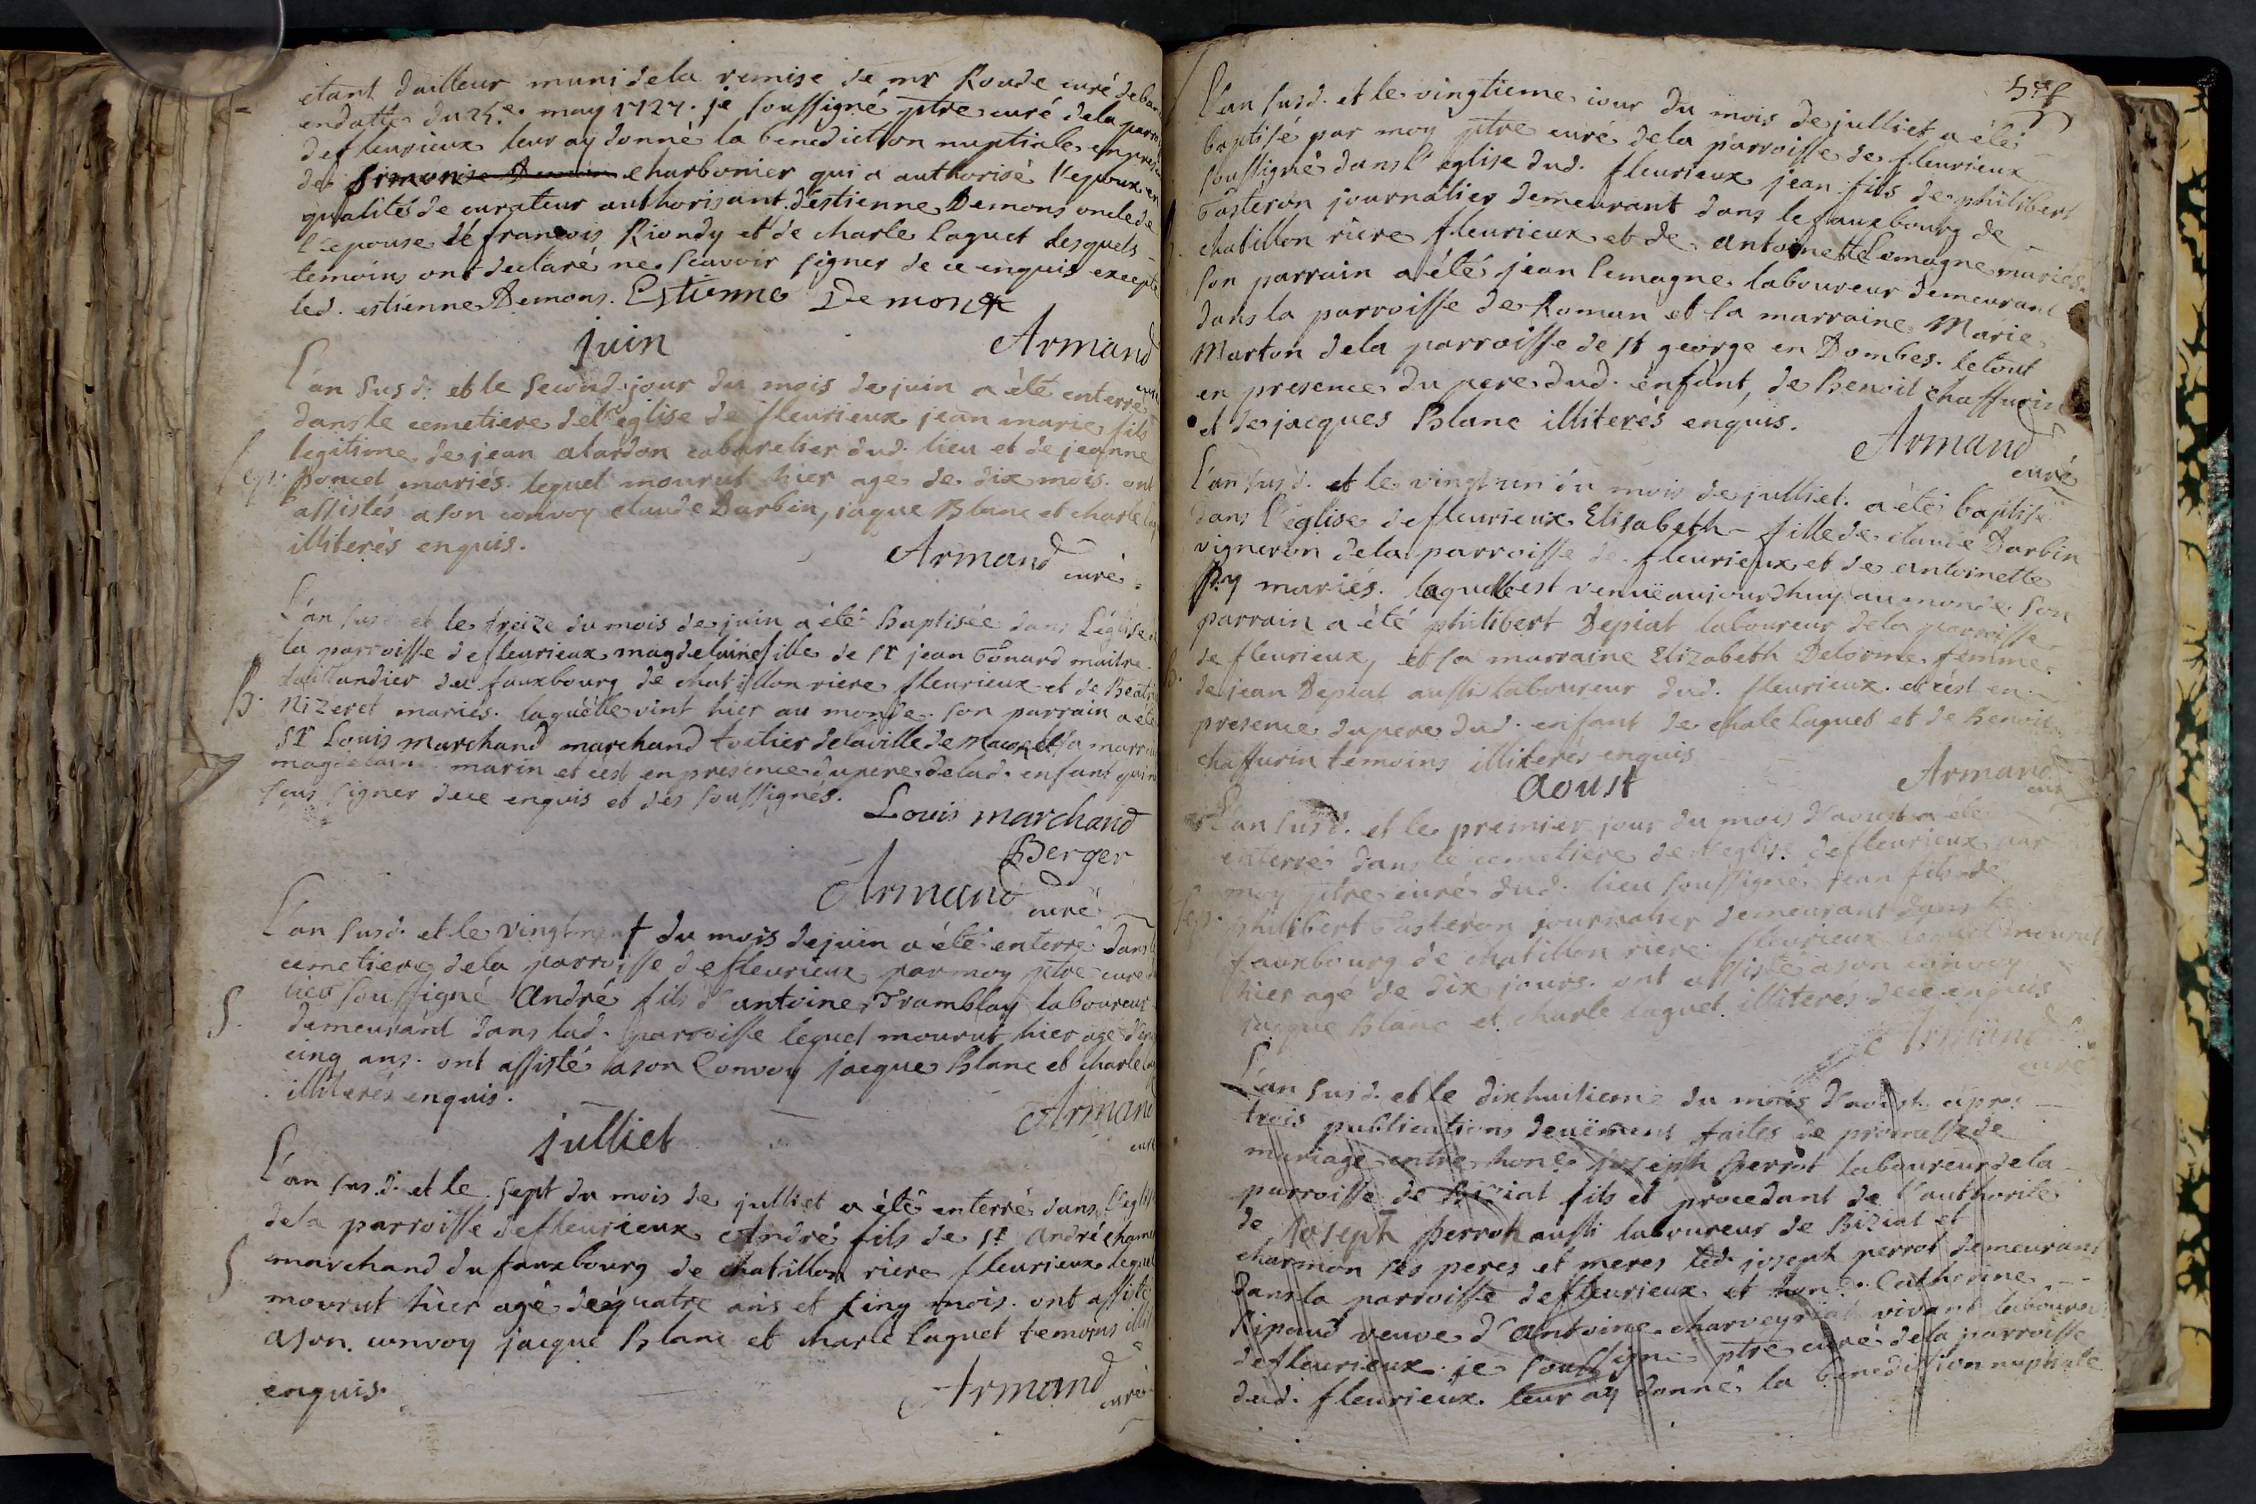 etant dailleur muni dela remise de mr Roude curé de
endatte du 25.e may 1727. je soussigné ptre curé dela parr
defleurieux leur ay donné la benediction nuptiale en pres
de simonise charbonier qui a authorisé l'epoux en
qualités de curateur authorisant. destienne Demons oncle de
l'epouse de francois Riondy et de charle laguet lesquels
temoins ont declaré ne scavoir signer de ce enquis excepte
led. estienne Demons. Estienne Demons
juin
Armand
curé
L'an susd. et le second jour du mois de juin a été enterré
dans le cemetiere del'eglise de fleurieux jean marie fils
legitime de jean alardon cabaretier dud. lieu et de jeanne
poncet mariés. lequel mourut hier age de dix mois. ont
assistés ason convoy claude Darbin, jaque Blanc et charle
illiterés enquis.
Armand curé
L'an susd et le treize du mois de juin a été baptisée dans L'église
la parroisse defleurieux magdelaine fille de sr jean Gonard maitre
taillandier du fauxbourg de chatillon riere fleurieux et de Beat
B. Nizeret mariés. laquelle vint hier au monde. son parrain a été
sr Louis marchand marchand toilier delaville de macon et sa marr
magdelaine marin et c'est en présence dupere delad. enfant qui
signer dece enquis et des soussignés.
Louis marchand
Berger
Armand curé
L'an susd. et le vingtneuf du mois dejuin a été enterré dans
cemetiere dela parroisse defleurieux parmoy ptre curé
soussigné André fils d'antoine Tramblay laboureur
S. demeurant dans lad. parroisse lequel mourut hier age
cinq ans. ont assisté ason Convoy jacque Blanc et charle
illiterés enquis.
Armand
curé
julliet
L'an sus.d. et le sept du mois de julliet a été enterré dans l'eglis
dela parroisse defleurieux André fils de sr André
S marchand du fauxbourg de chatillon riere fleurieux lequel
mourut hier agé de quatre ans et cinq mois. ont assisté
ason convoy jacque Blanc et charle laguet temoins illit
enquis.
Armand curé
L'an susd. et le vingtieme jour du mois de julliet a été
baptisé par moy ptre curé dela parroisse de fleurieux
soussigné dans l'eglise dud. fleurieux jean fils de philibert
Gasteron journalier demeurant dans lefauxbourg de
chatillon riere fleurieux et de antoinette Lemagne mariés.
son parrain a été jean lemagne laboureur demeurant
dans la parroisse de Roman et sa marraine Marie
Marton dela parroisse de st george en Dombes. letout
en presence du pere dud. enfant, de Benoit chaffurin
et de jacques Blanc illiterés enquis.
Armand
curé
L'an susd. et le vingtun du mois de julliet. a été baptisé
dans l'église defleurieux Elisabeth fille de claude Darbin
vigneron dela parroisse de fleurieux et de antoinette
mariés. laquelle est venüe aujourdhuy au monde. son
parrain a été philibert Depiat laboureur dela parroisse
B. de fleurieux, et sa marraine Elizabeth Delorme femme
de jean Depiat aussi laboureur dud. fleurieux. et c'est en
presence dupere dud. enfant de chale laguet et de Benoit
chaffurin temoins illiterés enquis
Armand
curé
aoust
L'an susd. et le premier jour du mois d'aoust a été
enterré dans le cemetiere de l'eglise defleurieux par
moy ptre curé dud. lieu soussigné jean fils de
philibert Gasteron journalier demeurant dans le
fauxbourg de chatillon riere fleurieux lequel mourut
hier agé de dix jours. ont assisté ason convoy
jacque Blanc et charle laguet illiterés dece enquis
Armand
curé
L'an susd. et le dixhuitieme du mois d'aoust apres
trois publications deuëment faites de promesse de
mariage entre hon.e joseph perrot laboureur dela
parroisse de Biziat fils et procedant de l'authorité
de Joseph perrot aussi laboureur de Biziat et
charmon ses peres et meres led. joseph perrot demeurant
dans la parroisse defleurieux et hon.e Catherine
Ripaud veuve d'Antoine charveyriat vivant laboureur
defleurieux. je soussigné ptre curé dela parroisse
dud. fleurieux. leur ay donné la benediction nuptiale